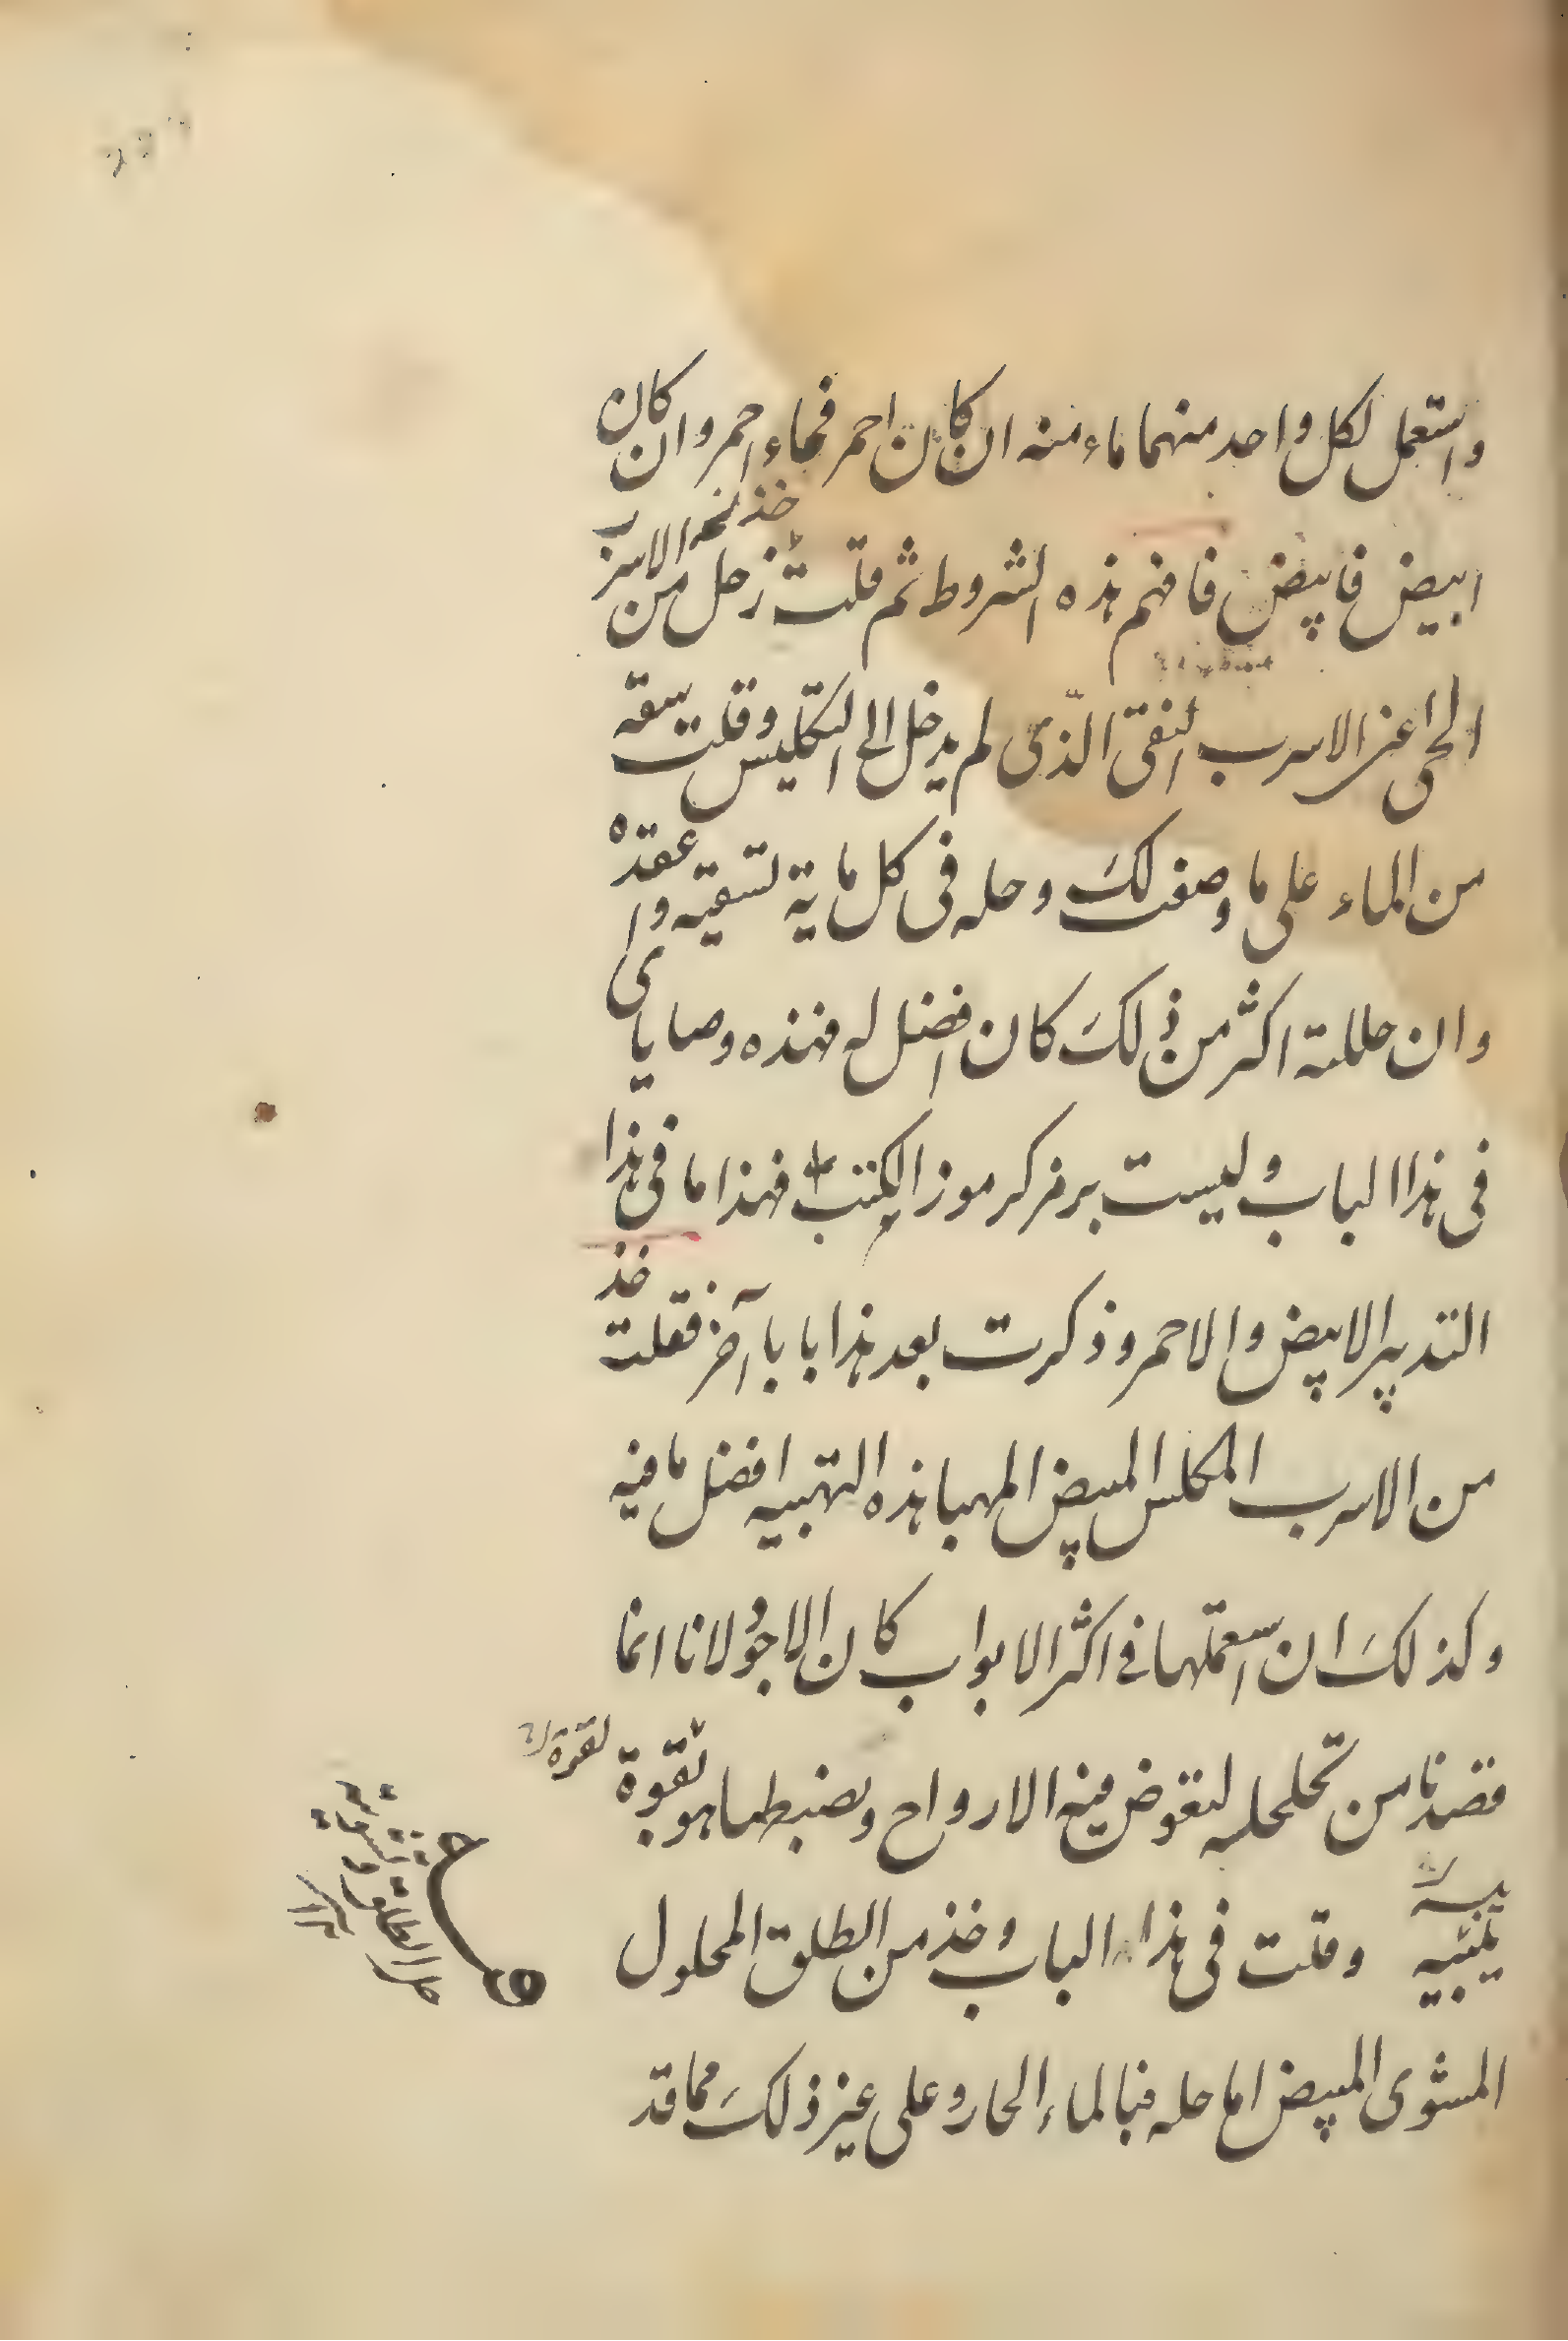 واستعمل لكل واحد منهما ماء منه ان كان احمر فماء احمر وان كان
ابيض فابيض فافهم هذه الشروط ثم قلت خذ زحل من
الحى اعنى الاسرب النقى الذى لم يدخل الى التكليس وقلت يسقه
من الماء على ما وصفت لك وحله فى كل ماية تسقيه واعقده
وان حللته اكثر من ذلك كان افضل له فهذه وصاياى
فى هذا الباب وليست برمز كرموز الكتب فهذا ما فى هذا
التدبير الابيض والاحمر وذكرت بعد هذا بابا آخر فقلت خذ
من الاسرب المكلس المبيض المهبا هذه التهبيه افضل ما فيه
وكذلك ان استعملتها فى اكثر الابواب كان الاجود لانا انما
قصدنا من تحلحله لتغوض فيه الارواح ويضبطها هو بقوة
وقلت فى هذا الباب وخذ من الطلق المحلول
المشوى المبيض اما حله فبالماء الحار وعلى غير ذلك مما قد